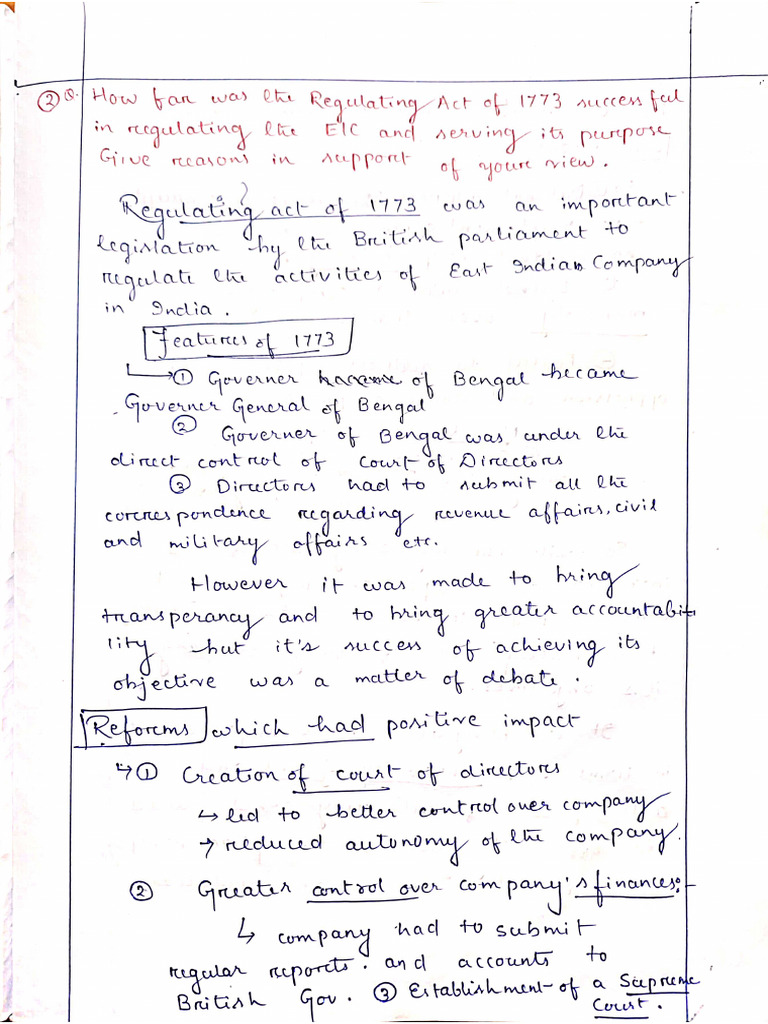 ② Q. How far was the Regulating Act of 1773 successful
in regulating the EIC and serving its purpose
Give reasons in support of your view.
Regulating act of 1773 was an important
legislation by the British parliament to
regulate the activities of East Indian Company
in India.
Features of 1773
① Governer of Bengal became
Governer General of Bengal
② Governer of Bengal was under the
direct control of Court of Directors
③ Directors had to submit all the
correspondence regarding revenue affairs, civil
and military affairs etc.
However it was made to bring
transperancy and to bring greater accountabi-
lity but it's success of achieving its
objective was a matter of debate.
Reforms which had positive impact
↳ ① Creation of court of directors
↳ led to better control over company
→ reduced autonomy of the company.
② Greater control over company's finances:-
↳ company had to submit
regular reports. and accounts to
British Gov. ③ Establishment of a Supreme
Court.